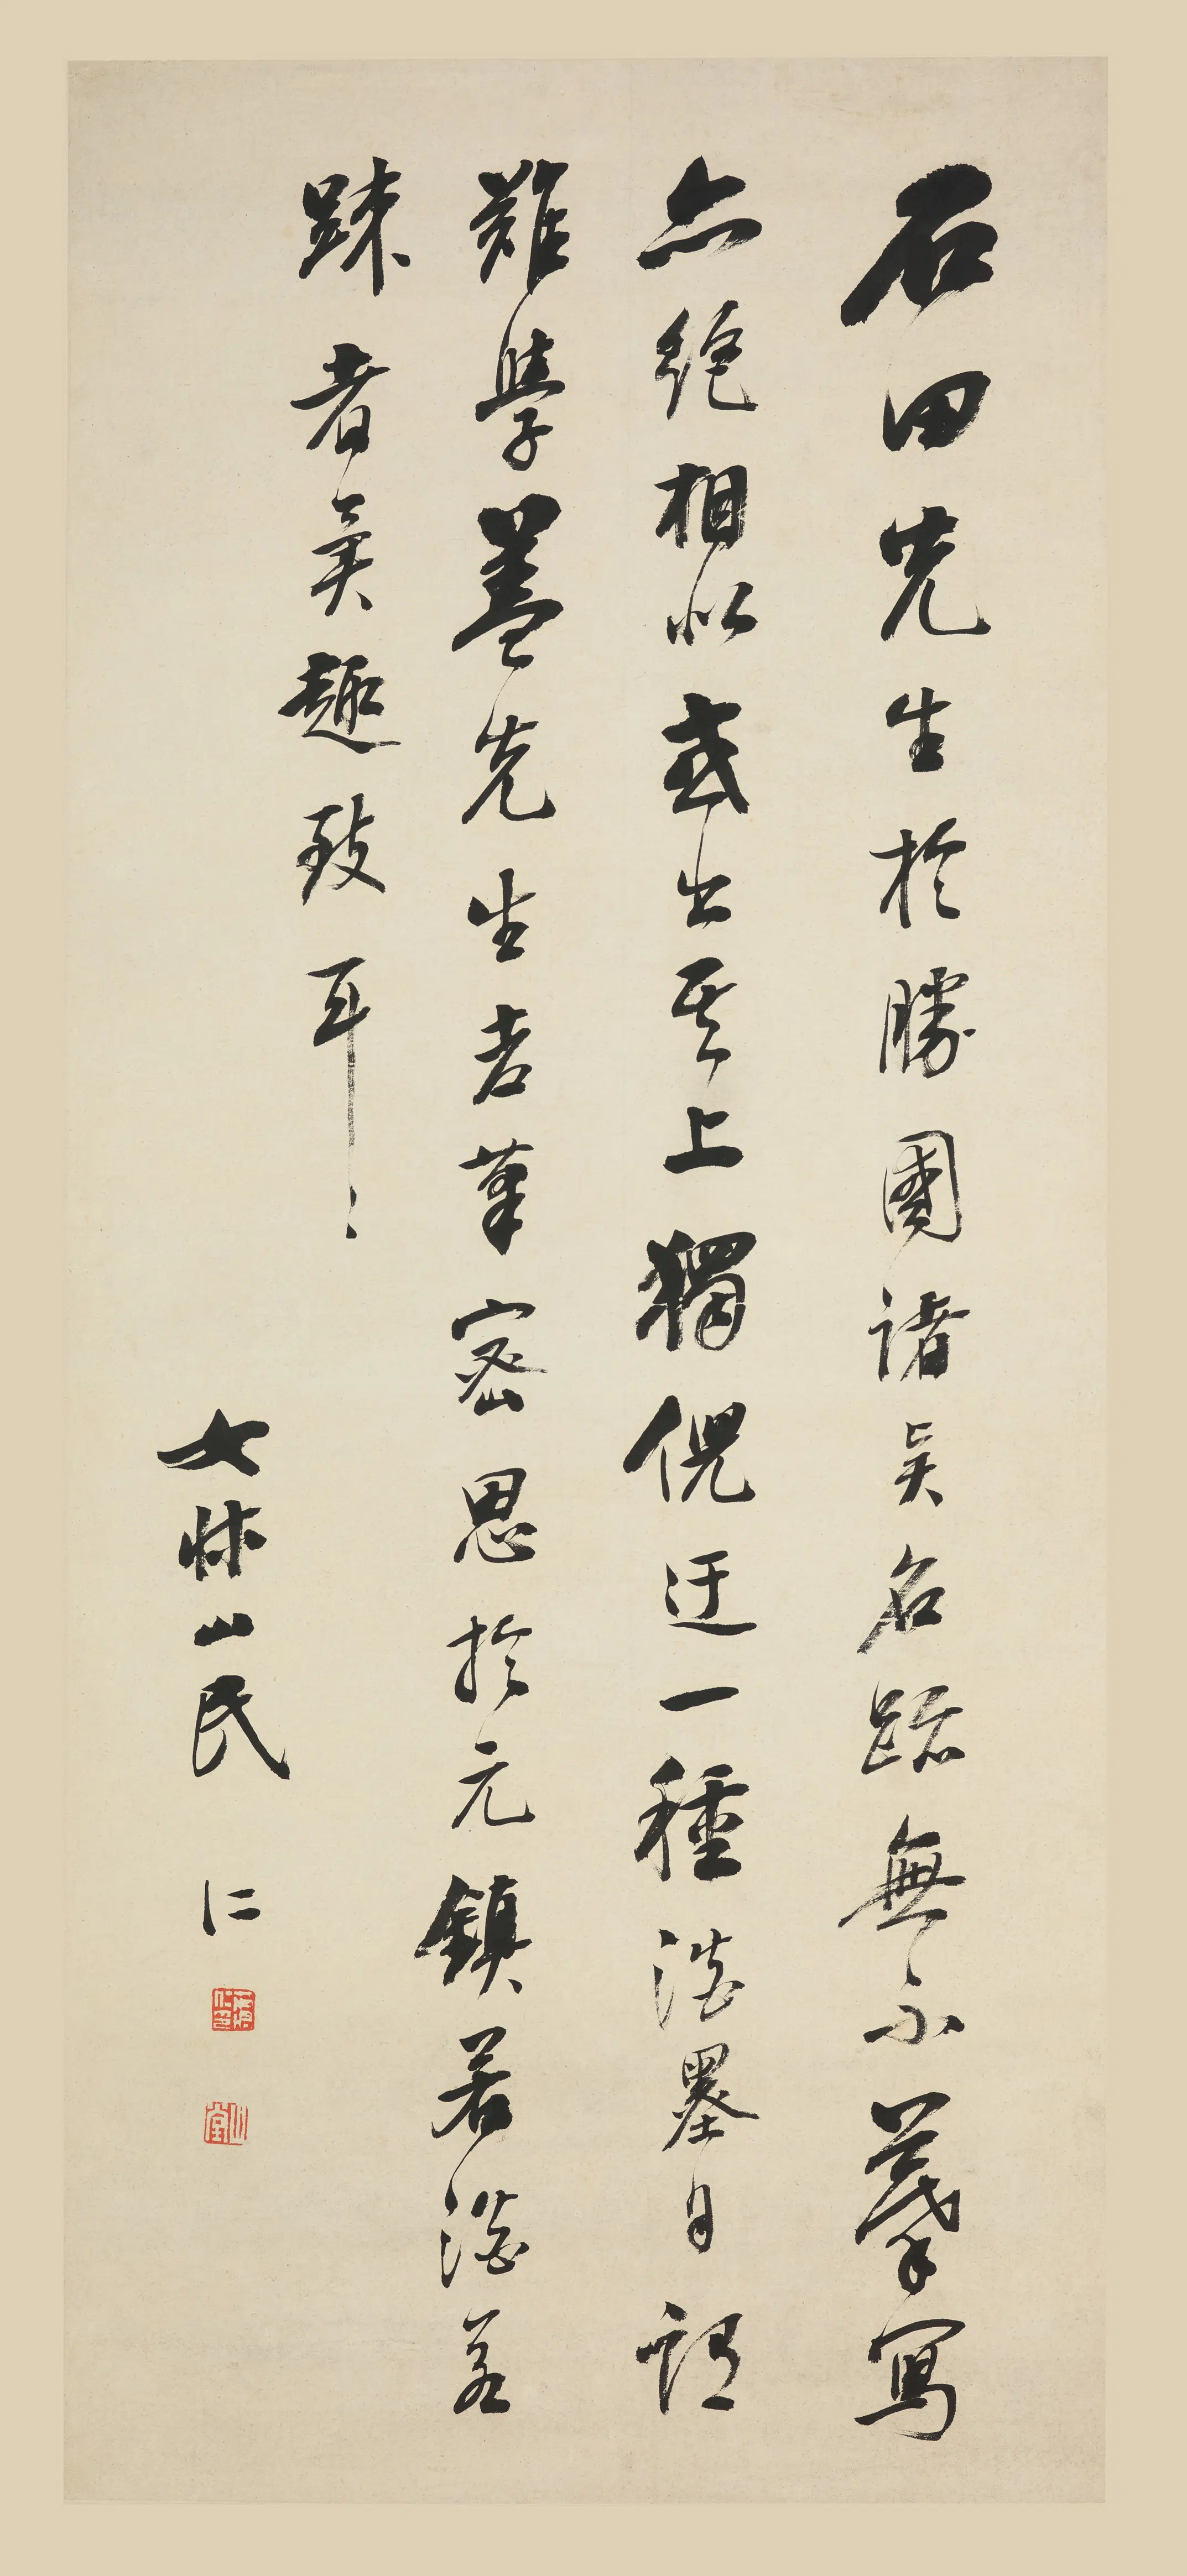 石田先生於勝國諸吳名跡無不摹寫
亦絕相似或出其上獨倪迂一種淡墨自謂
難學蓋先生老筆密思於元鎮若淡若
踈者異趣致耳
女床山民 仁